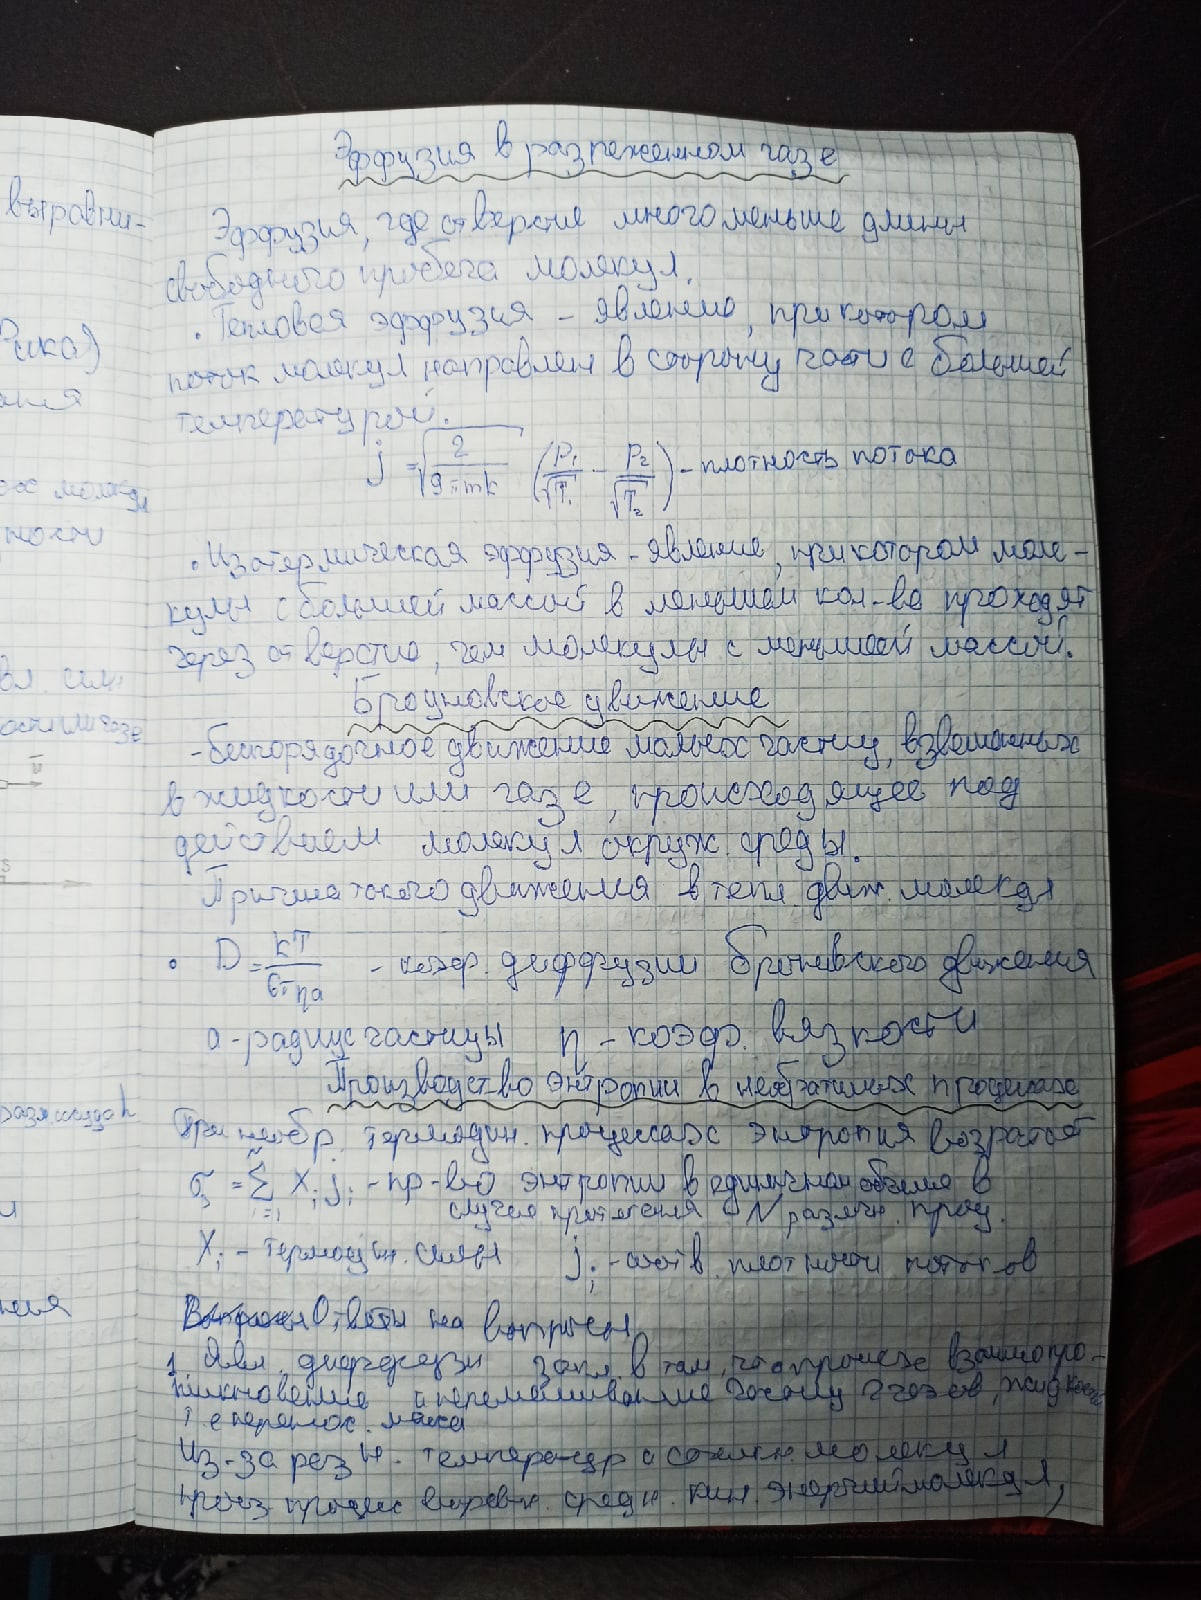 Эффузия в разреженном газе
Эффузия, где отверстие много меньше длины
свободного пробега молекул.
• Тепловая эффузия – явление, при котором
поток молекул направлен в сторону части с большей
температурой.
j = √(2/(9πmk)) (P₁/√T₁ − P₂/√T₂) – плотность потока
• Изотермическая эффузия – явление, при котором моле-
кулы с большей массой в меньшем кол-ве проходят
через отверстие, чем молекулы с меньшей массой.
Броуновское движение
– беспорядочное движение малых частиц, взвешанных
в жидкости или газе, происходящее под
действием молекул окруж. среды.
Причина такого движения в тепл. движ. молекул
• D = kT/(6πηa) – коэф. диффузии броневского движения
a – радиус частицы η – коэф. вязкости
Производство энтропии в необратимых процессах
При необр. термодин. процессах энтропия возрастает
σs = Σ Xi ji – пр-во энтропии в единичном объеме в
i=1
случае протекания N различн. проц.
Xi – термодин. силы ji – соотв. плотности потоков
Ответы на вопросы
1. Явл. диффузии закл. в том, что происх взаимопро-
никновение и перемешивание частиц 2 газов, жидкост
т.е перенос. масса
Из-за разн. температур и столкн. молекул
проис процес выравн. средн. кин. энергий молекул,
выравни-
молекул
ности
вл. сил.
ū
S